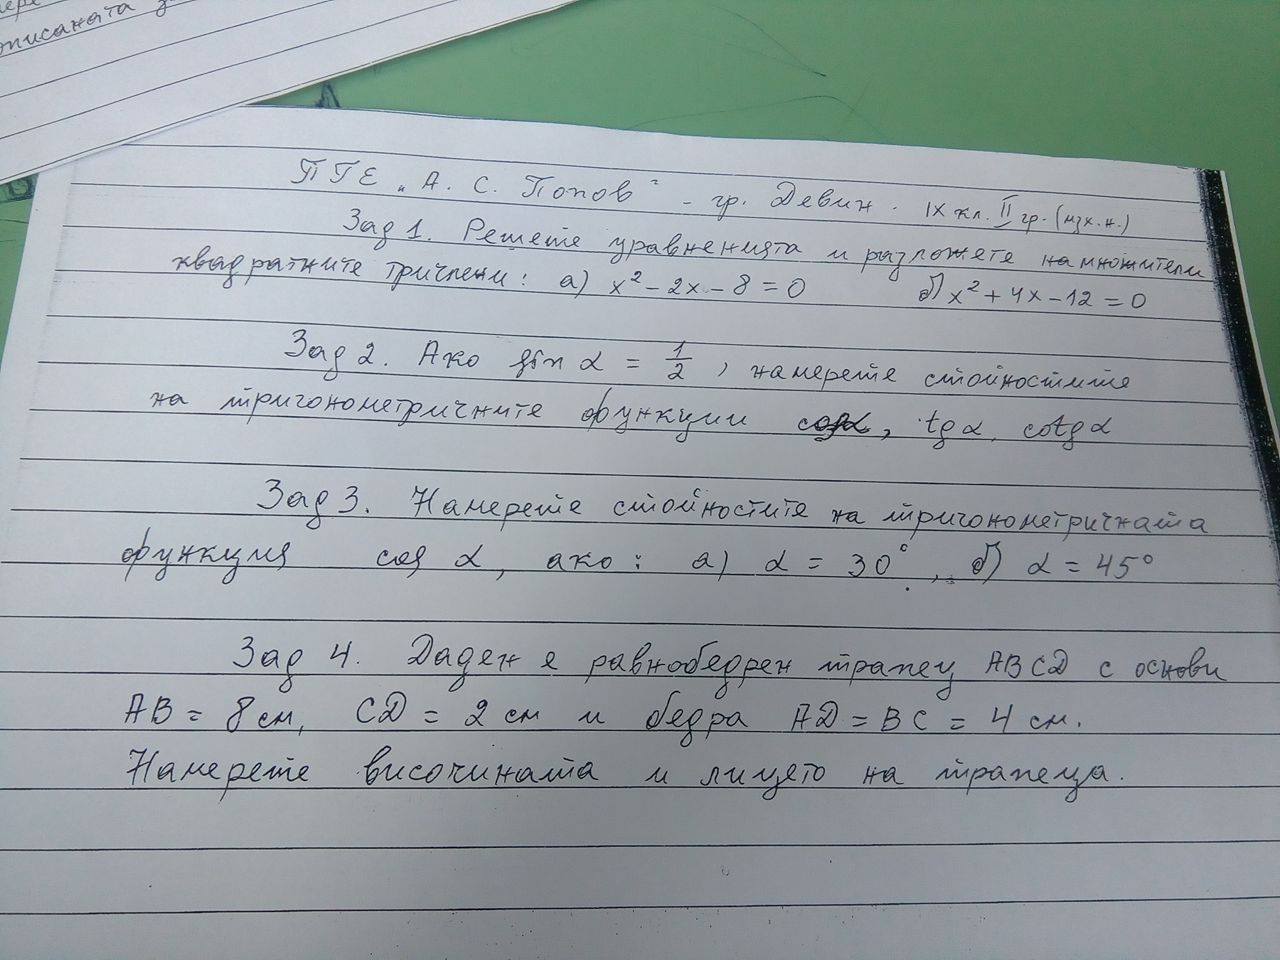 описаната
ПГЕ „А. С. Попов“ - гр. Девин. IX кл. II гр. (изх. н.)
Зад 1. Решете уравненията и разложете на множители
квадратните тричлени: а) x² - 2x - 8 = 0 б) x² + 4x - 12 = 0
Зад 2. Ако sin α = 1/2, намерете стойностите
на тригонометричните функции cos α, tg α, cotg α
Зад 3. Намерете стойностите на тригонометричната
функция cos α, ако: а) α = 30°, б) α = 45°
Зад 4. Даден е равнобедрен трапец ABCD с основи
AB = 8 см, CD = 2 см и бедра AD = BC = 4 см.
Намерете височината и лицето на трапеца.